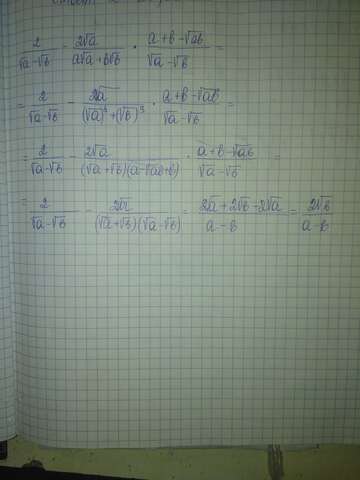 2/(√a-√b) - 2√a/(a√a+b√b) · (a+b-√ab)/(√a-√b) =
= 2/(√a-√b) - 2√a/((√a)³+(√b)³) · (a+b-√ab)/(√a-√b) =
= 2/(√a-√b) - 2√a/((√a+√b)(a-√ab+b)) · (a+b-√ab)/(√a-√b) =
= 2/(√a-√b) - 2√a/((√a+√b)(√a-√b)) = (2√a+2√b-2√a)/(a-b) = 2√b/(a-b)